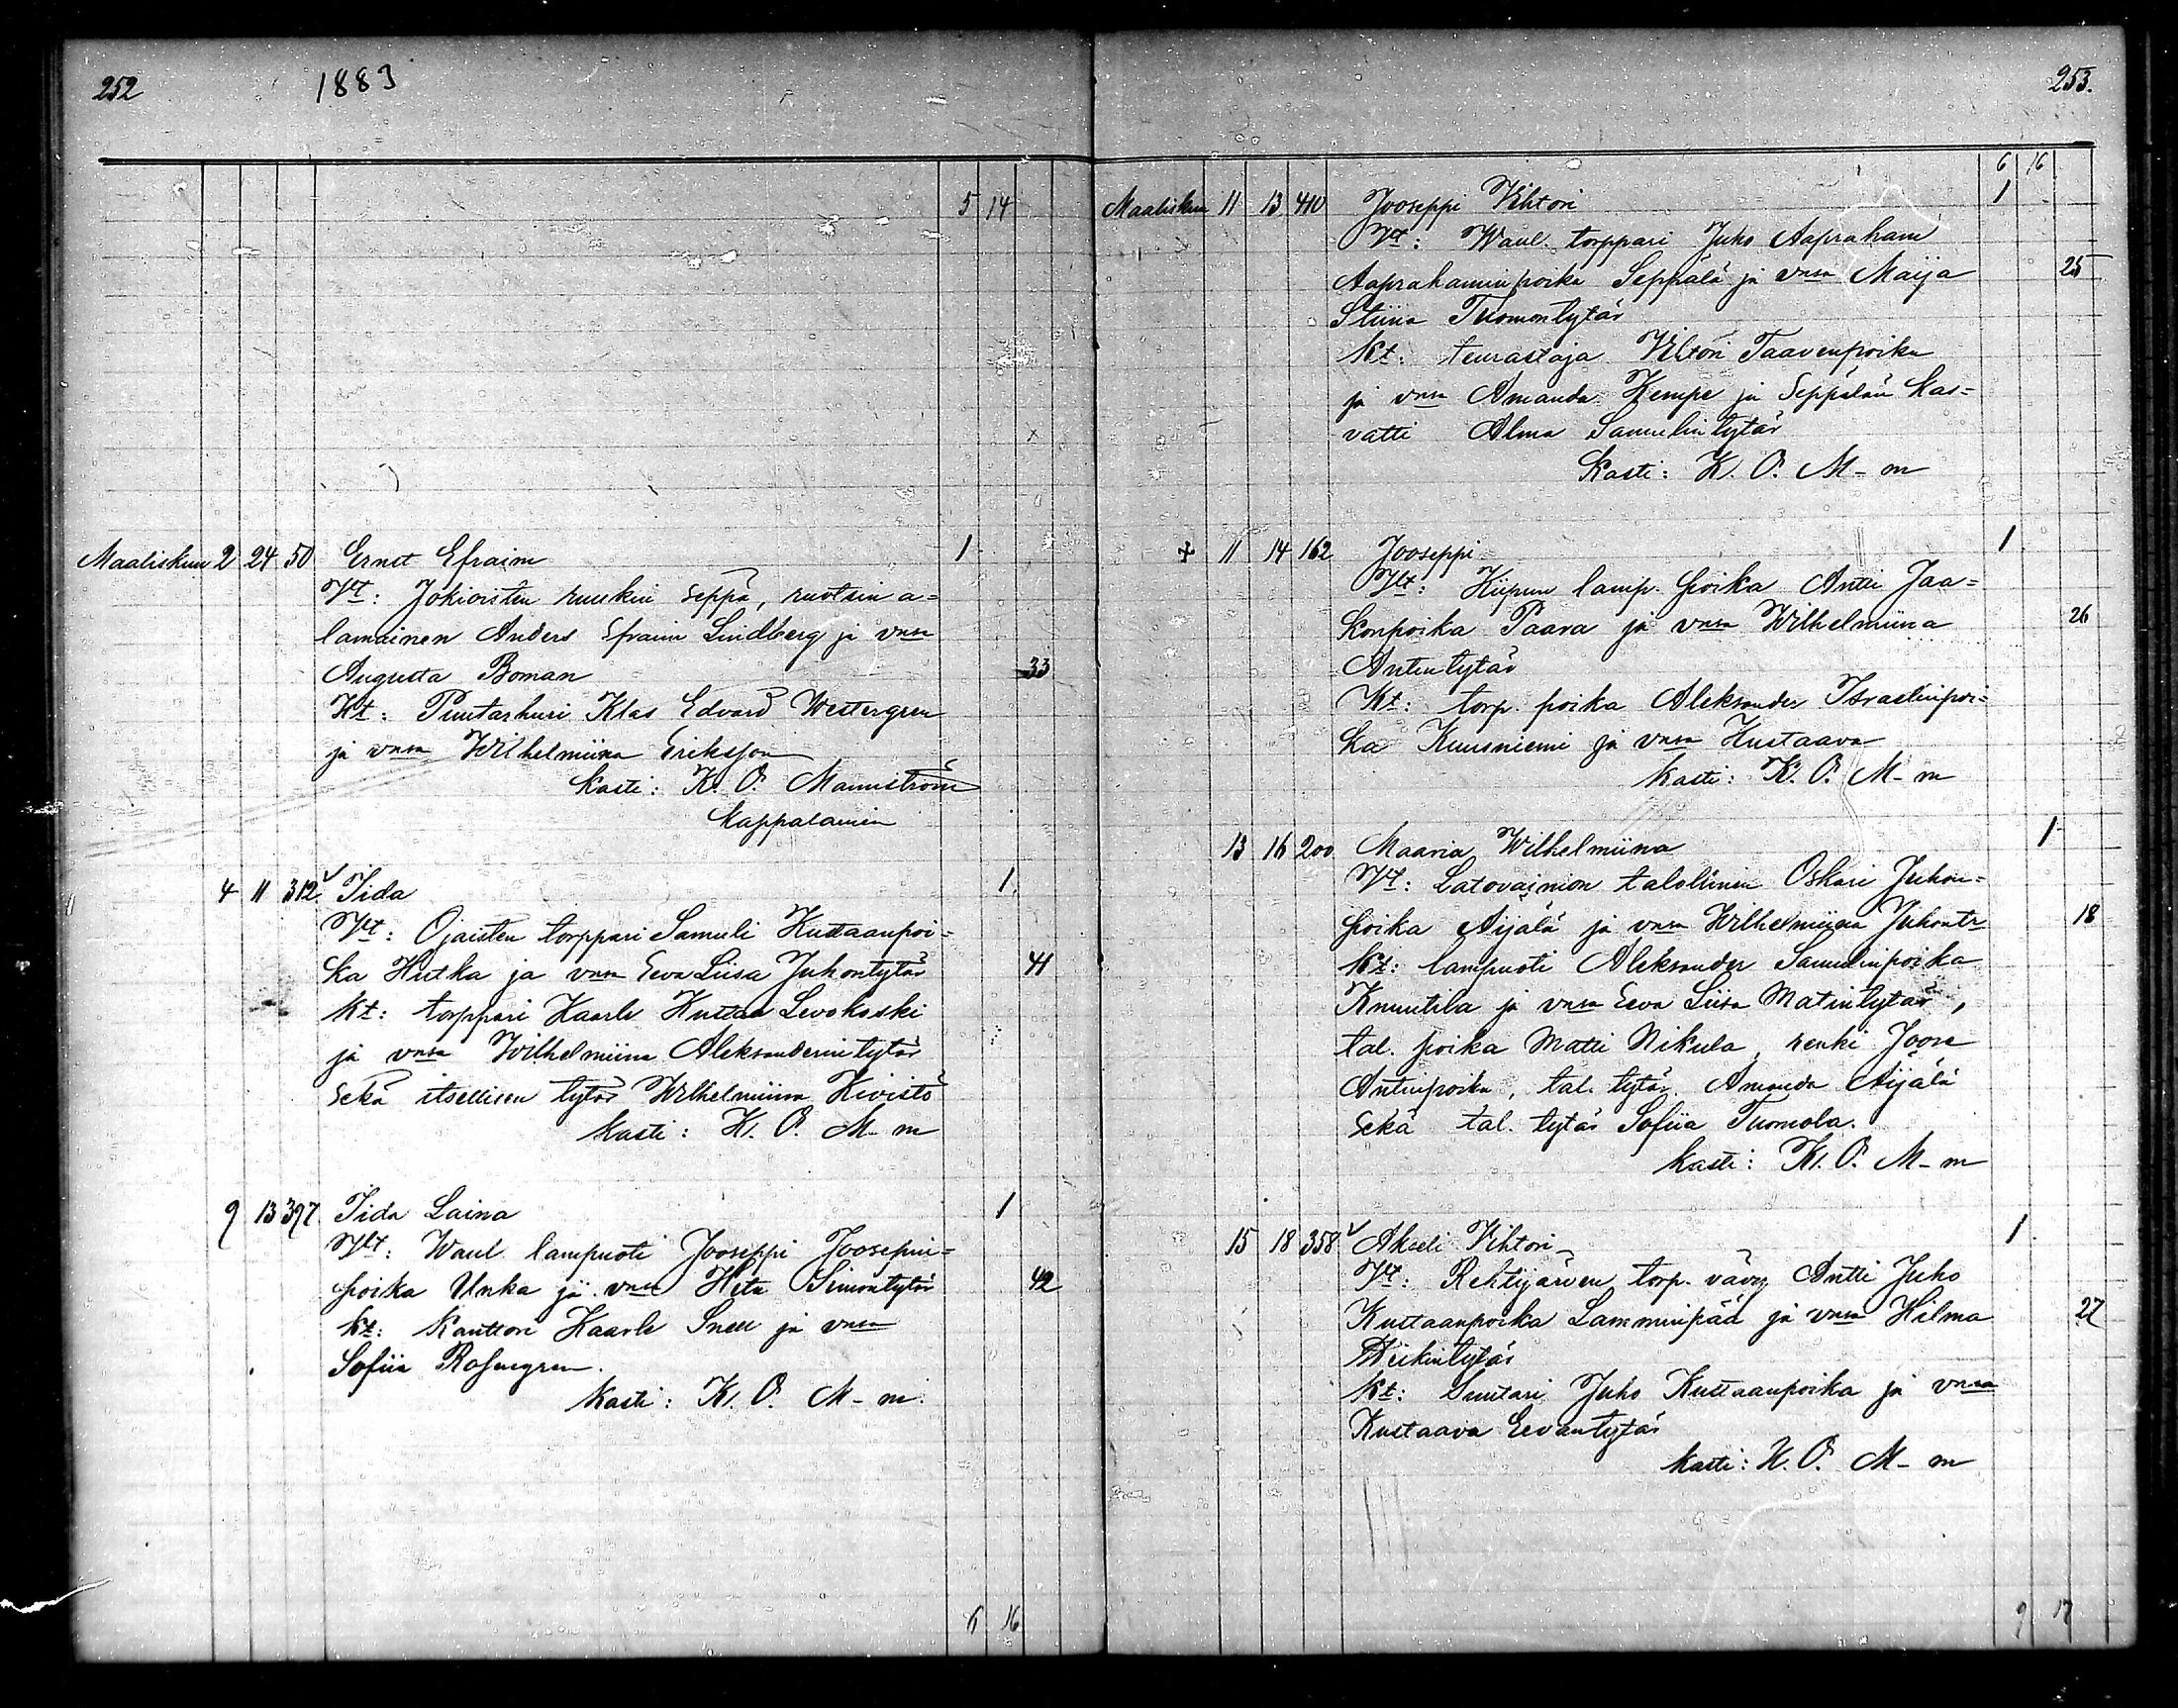 252
1883
5 14
Maaliskuu 2 24 50 Ernst Efraim 1
Vt: Jokioisten ruukin seppä, ruotsin a=
lamainen Anders Efraim Lindberg ja vmsa
Augusta Boman 33
Kt: Puutarhuri Klas Edvard Westergren
ja vmsa Wilhelmiina Eriksson
Kasti: K. O. Mannström
Kappalainen
4 11 312 Iida 1
Vt: Ojaisten torppari Samuli Kustaanpoi=
ka Hutka ja vmsa Eeva Liisa Juhontytär 41
Kt: torppari Kaarle Kustaa Levokoski
ja vmsa Wilhelmiina Aleksanderintytär
Sekä itsellisen tytär Wilhelmiina Kivistö
Kasti: K. O. M-m
9 13 397 Iida Laina 1
Vt: Waul. lampuoti Jooseppi Joosepin=
poika Unka ja vmsa Heta Simontytär 42
Kt: Kanttori Kaarle Snell ja vmsa
Sofiia Rosengren.
Kasti: K. O. M-m.
6 16
253.
6 16
Maaliskuu 11 13 410 Jooseppi Vihtori 1
Vt: Waul. torppari Juho Aapraham
Aaprahaminpoika Seppälä ja vmsa Maija 25
Stiina Tuomontytär
Kt: teurastaja Vihtori Taavenpoika
ja vmsa Amanda Kempe ja Seppälän kas=
vatti Alma Samulintytär
Kasti: K. O. M-m
11 14 162 Jooseppi 1
Vt: Kiipun lamp. poika Antti Jaa=
konpoika Paava ja vmsa Wilhelmiina 26
Antintytär
Kt: torp. poika Aleksander Israelinpoi=
ka Kuusniemi ja vmsa Kustaava
Kasti: K. O. M-m
13 16 200 Maaria Wilhelmiina 1
Vt: Latovainion talollinen Oskari Juhon=
poika Äijälä ja vmsa Wilhelmiina Juhontr 18
Kt: lampuoti Aleksander Samulinpoika
Knuutila ja vmsa Eeva Liisa Matintytär,
tal. poika Matti Nikula, renki Joose
Antinpoika, tal. tytär Amanda Äijälä
Sekä tal. tytär Sofiia Tuomola.
Kasti: K. O. M-m
15 18 358 Akseli Vihtori 1
Vt: Rehtijärven torp. vävy Antti Juho
Kustaanpoika Lamminpää ja vmsa Hilma 27
Heikintytär
Kt: Suutari Juho Kustaanpoika ja vmsa
Kustaava Eevantytär
Kasti: K. O. M-m
9 17